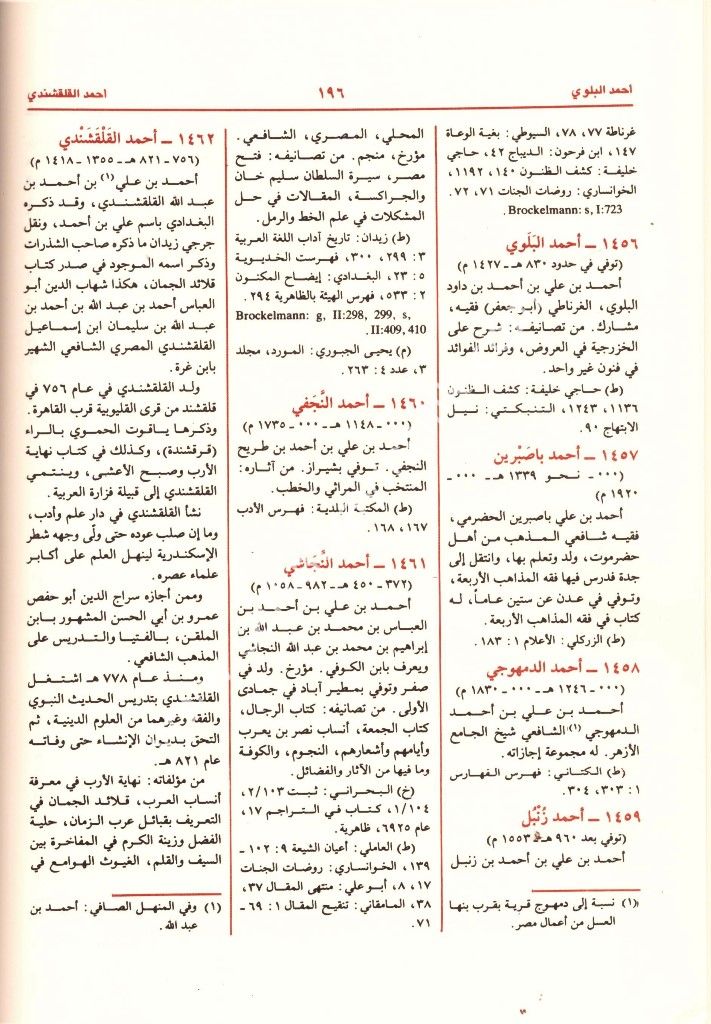 أحمد البلوي
١٩٦
أحمد القلقشندي
غرناطة ٧٧، ٧٨، السيوطي: بغية الوعاة
١٤٧، ابن فرحون: الديباج ٤٢، حاجي
خليفة: كشف الظنون ١٤٠، ١١٩٢،
الخوانساري: روضات الجنات ٧١، ٧٢.
Brockelmann: s, I:723.
١٤٥٦ ـ أحمد البَلَوي
(توفي في حدود ٨٣٠ هـ ـ ١٤٢٧ م)
أحمد بن علي بن أحمد بن داود
البلوي، الغرناطي (أبو جعفر) فقيه،
مشارك. من تصانيفه: شرح على
الخزرجية في العروض، وفرائد الفوائد
في فنون غير واحد.
(ط) حاجي خليفة: كشف الظنون
١١٣٦، ١٢٤٣، التنبكتي: نيل
الابتهاج ٩٠.
١٤٥٧ ـ أحمد باصَبْرين
(٠٠٠ ـ نحو ١٣٣٩ هـ ـ ٠٠٠ ـ
١٩٢٠ م)
أحمد بن علي باصبرين الحضرمي،
فقيه شافعي المذهب من أهل
حضرموت، ولد وتعلم بها، وانتقل إلى
جدة فدرس فيها فقه المذاهب الأربعة،
وتوفي في عدن عن ستين عاماً، له
كتاب في فقه المذاهب الأربعة.
(ط) الزركلي: الأعلام ١: ١٨٣.
١٤٥٨ ـ أحمد الدمهوجي
(٠٠٠ ـ ١٢٤٦ هـ ـ ٠٠٠ ـ ١٨٣٠ م)
أحمد بن علي بن أحمد
الدمهوجي (١) الشافعي شيخ الجامع
الأزهر. له مجموعة إجازاته.
(ط) الكتاني: فهرس الفهارس
١: ٣٠٣، ٣٠٤.
١٤٥٩ ـ أحمد زُنْبُل
(توفي بعد ٩٦٠ هـ ـ ١٥٥٣ م)
أحمد بن علي بن أحمد بن زنبل
(١) نسبة إلى دمهوج قرية بقرب بنها
العسل من أعمال مصر.
المحلي، المصري، الشافعي.
مؤرخ، منجم. من تصانيفه: فتح
مصر، سيرة السلطان سليم خان
والجراكسة، المقالات في حل
المشكلات في علم الخط والرمل.
(ط) زيدان: تاريخ آداب اللغة العربية
٣: ٢٩٩، ٣٠٠، فهرست الخديوية
٥: ٢٣، البغدادي: إيضاح المكنون
٢: ٥٣٣، فهرس الهيئة بالظاهرية ٢٩٤.
Brockelmann: g, II:298, 299, s,
II:409, 410.
(م) يحيى الجبوري: المورد، مجلد
٣، عدد ٤: ٢٦٣.
١٤٦٠ ـ أحمد النَّجَفي
(٠٠٠ ـ ١١٤٨ هـ ـ ٠٠٠ ـ ١٧٣٥ م)
أحمد بن علي بن أحمد بن طريح
النجفي. توفي بشيراز. من آثاره:
المنتخب في المراثي والخطب.
(ط) المكتبة البلدية: فهرس الأدب
١٦٧، ١٦٨.
١٤٦١ ـ أحمد النُّجَاشي
(٣٧٢ ـ ٤٥٠ هـ ـ ٩٨٢ ـ ١٠٥٨ م)
أحمد بن علي بن أحمد بن
العباس بن محمد بن عبد الله بن
إبراهيم بن محمد بن عبد الله النجاشي
ويعرف بابن الكوفي. مؤرخ. ولد في
صفر وتوفي بمطير آباد في جمادى
الأولى. من تصانيفه: كتاب الرجال،
كتاب الجمعة، أنساب نصر بن يعرب
وأيامهم وأشعارهم، النجوم، والكوفة
وما فيها من الآثار والفضائل.
(خ) البحراني: ثبت ٢/١٠٣،
١/١٠٤، كتاب في التراجم ١٧،
عام ٦٩٢٥، ظاهرية.
(ط) العاملي: أعيان الشيعة ٩: ١٠٢ ـ
١٣٩، الخوانساري: روضات الجنات
١٧، ٨، أبو علي: منتهى المقال ٣٧،
٣٨، المامقاني: تنقيح المقال ١: ٦٩ ـ
٧١.
١٤٦٢ ـ أحمد القَلْقَشَنْدي
(٧٥٦ ـ ٨٢١ هـ ـ ١٣٥٥ ـ ١٤١٨ م)
أحمد بن علي (١) بن أحمد بن
عبد الله القلقشندي، وقد ذكره
البغدادي باسم علي بن أحمد، ونقل
جرجي زيدان ما ذكره صاحب الشذرات
وذكر اسمه الموجود في صدر كتاب
قلائد الجمان، هكذا شهاب الدين أبو
العباس أحمد بن عبد الله بن أحمد بن
عبد الله بن سليمان ابن إسماعيل
القلقشندي المصري الشافعي الشهير
بابن غرة.
ولد القلقشندي في عام ٧٥٦ في
قلقشند من قرى القليوبية قرب القاهرة.
وذكرها ياقوت الحموي بالراء
(قرقشندة)، وكذلك في كتاب نهاية
الأرب وصبح الأعشى، وينتمي
القلقشندي إلى قبيلة فزارة العربية.
نشأ القلقشندي في دار علم وأدب،
وما إن صلب عوده حتى ولّى وجهه شطر
الإسكندرية لينهل العلم على أكابر
علماء عصره.
وممن أجازه سراج الدين أبو حفص
عمرو بن أبي الحسن المشهور بابن
الملقن، بالفتيا والتدريس على
المذهب الشافعي.
ومنذ عام ٧٧٨ هـ اشتغل
القلقشندي بتدريس الحديث النبوي
والفقه وغيرهما من العلوم الدينية، ثم
التحق بديوان الإنشاء حتى وفاته
عام ٨٢١ هـ.
من مؤلفاته: نهاية الأرب في معرفة
أنساب العرب، قلائد الجمان في
التعريف بقبائل عرب الزمان، حلية
الفضل وزينة الكرم في المفاخرة بين
السيف والقلم، الغيوث الهوامع في
(١) وفي المنهل الصافي: أحمد بن
عبد الله.